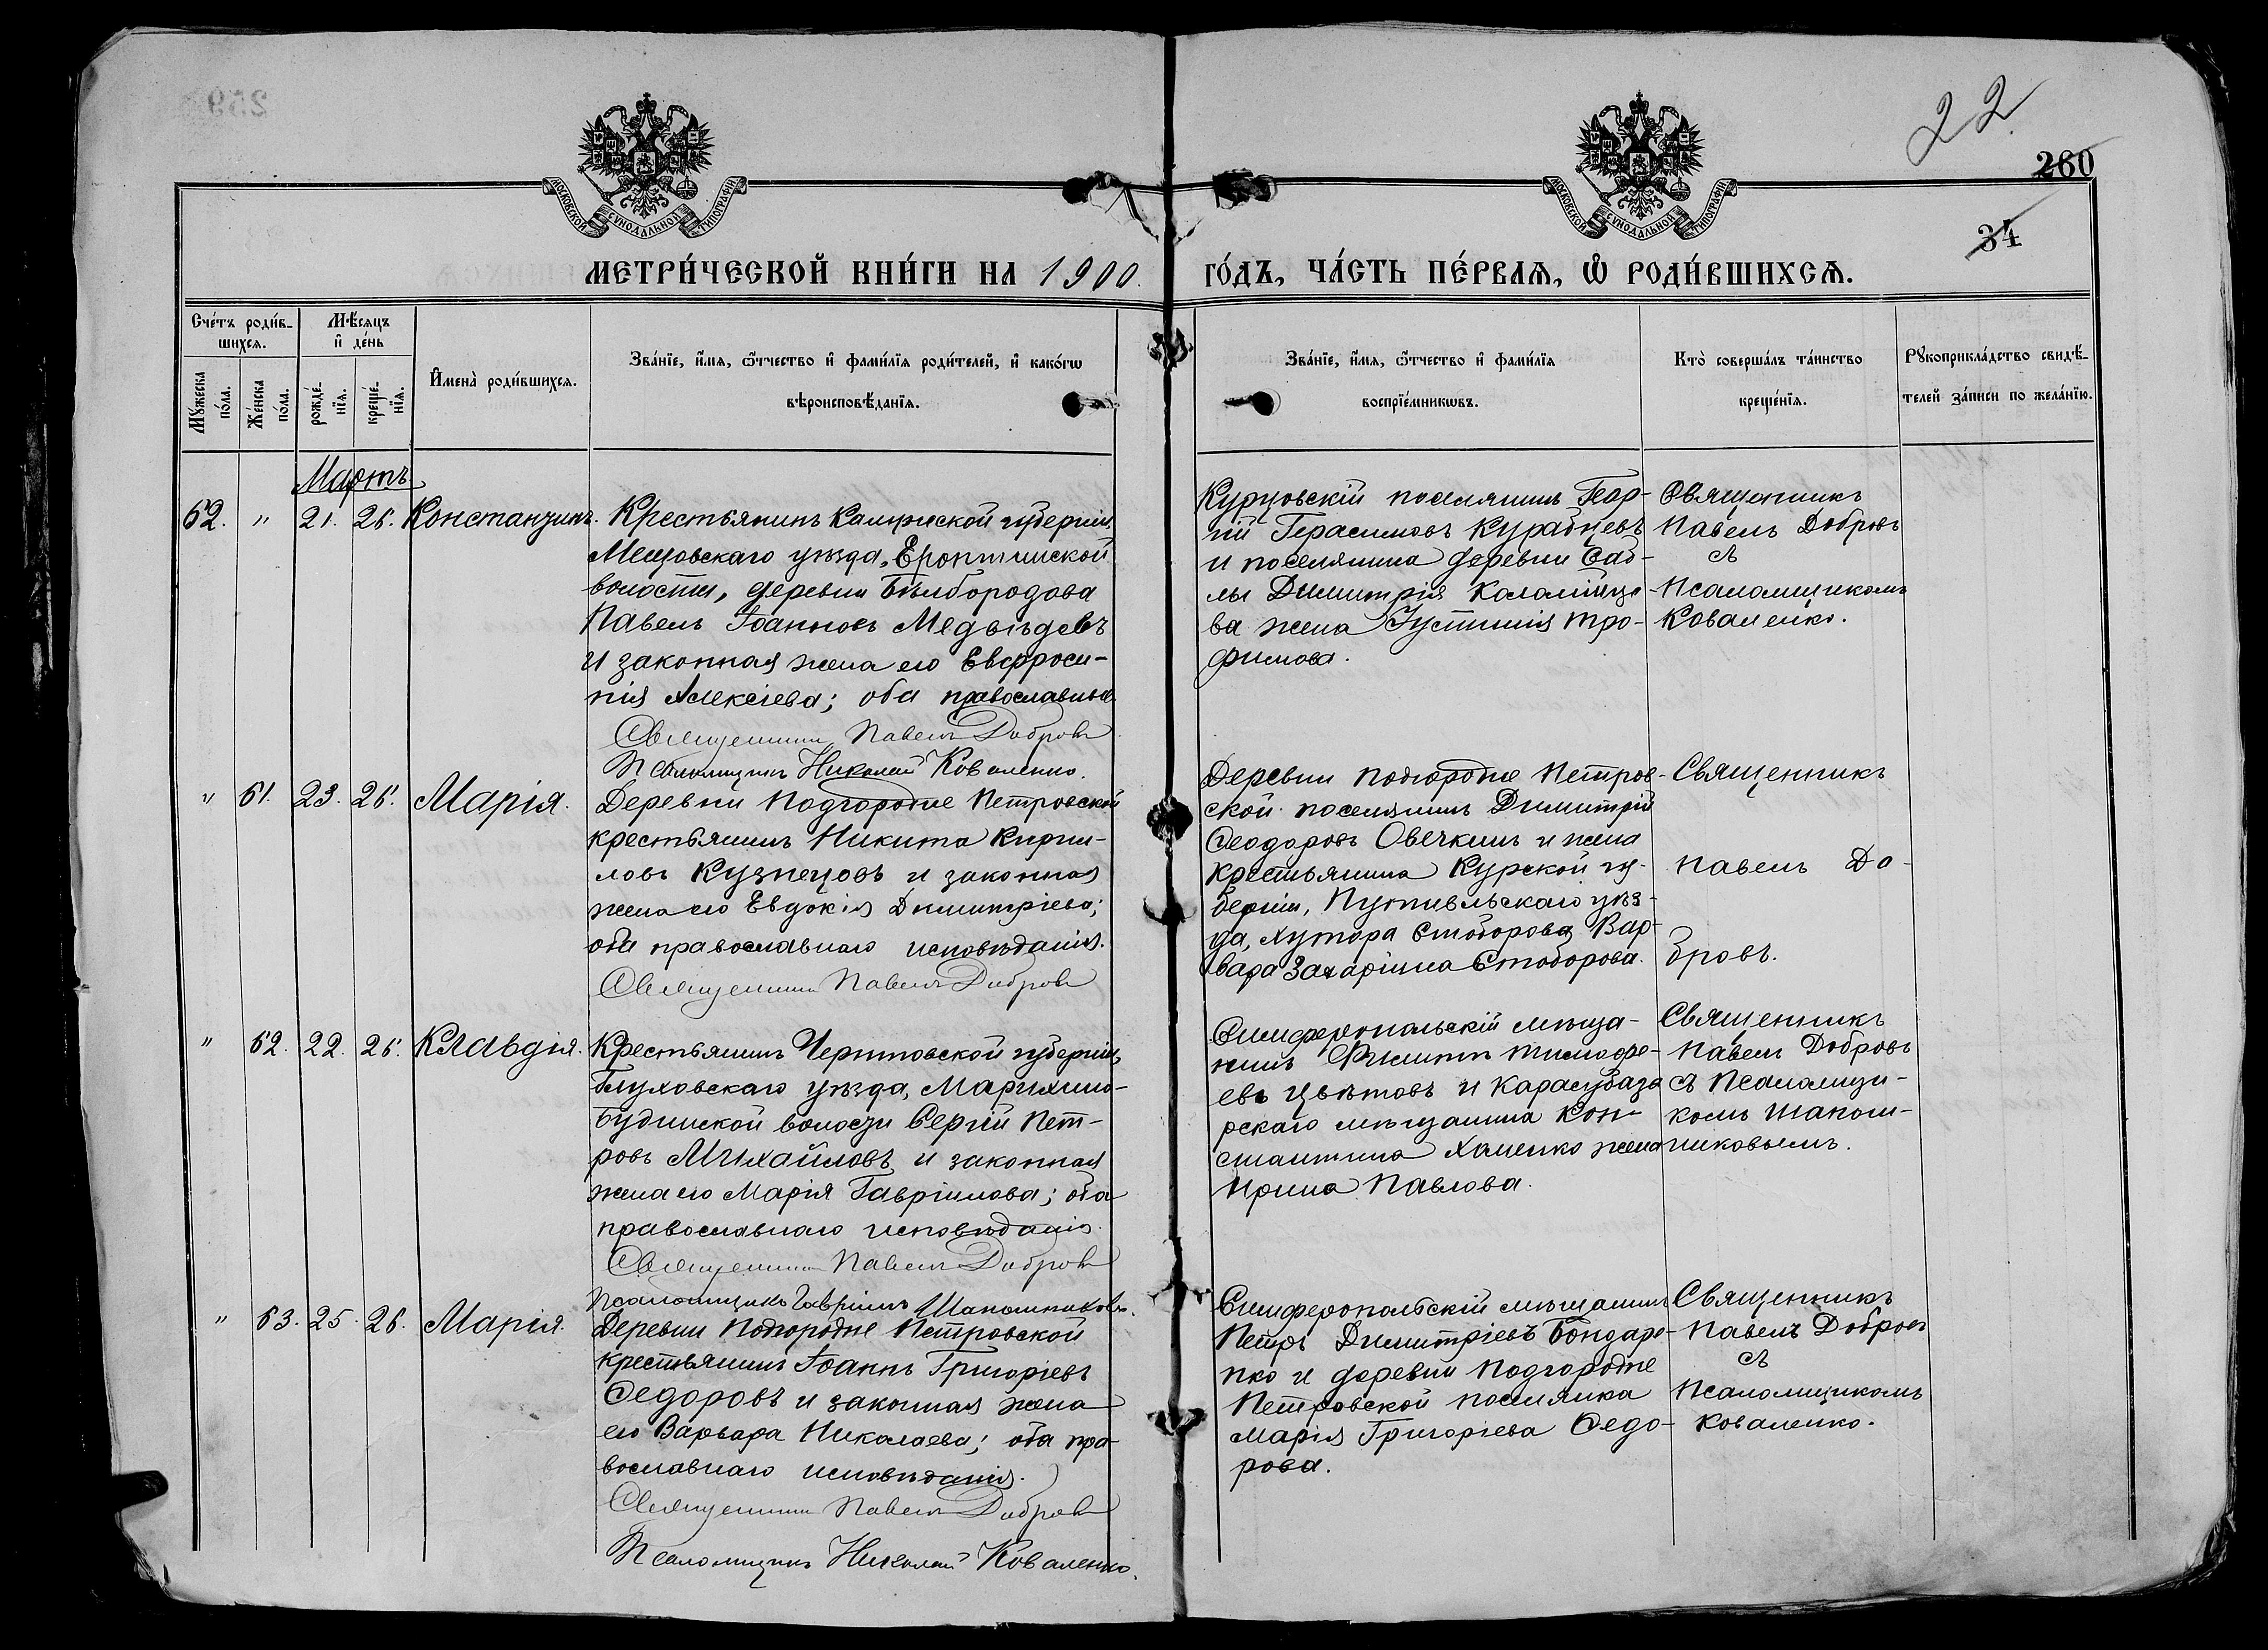 259
22
260
34
МОСКОВСКОЙ СУНОДАЛЬНОЙ ТИПОГРАФІИ
МОСКОВСКОЙ СУНОДАЛЬНОЙ ТИПОГРАФІИ
МЕТРИ́ЧЕСКОЙ КНИ́ГИ НА 1900.
ГО́ДЪ, ЧА́СТЬ ПЕ́РВАѦ, Ѡ҆ РОДИ́ВШИХСѦ.
Сче́тъ роди́в-
шихсѧ.
Мꙋ́жеска
по́ла.
Же́нска
по́ла.
Мѣ́сѧцъ
и҆ де́нь
рожде́-
нїѧ.
креще́-
нїѧ.
И҆мена̀ роди́вшихсѧ.
Зва́нїе, и҆́мѧ, ѻ҆́тчество и҆ фами́лїѧ роди́телей, и҆ како́гѡ
вѣроисповѣ́данїѧ.
Зва́нїе, и҆́мѧ, ѻ҆́тчество и҆ фами́лїѧ
воспрїе́мникѡвъ.
Кто̀ соверша́лъ та́инство
креще́нїѧ.
Рꙋкоприкла́дство свидѣ́-
телей за́писи по жела́нїю.
Мартъ
62. " 21. 26. Константинъ.
Крестьянинъ Калужской губерніи,
Мещовскаго уѣзда,
волости, деревни Бѣлбородова
Павелъ Іоанновъ Медвѣдевъ
и законная жена его Евфроси-
нія Алексіева; оба православные
Священникъ Павелъ Добровъ
Псаломщикъ Николай Коваленко.
Курцовскій поселянинъ Геор-
гій Герасимовъ Курабцевъ
и поселянина деревни Саб-
лы Димитрія Коломійце-
ва жена Іустинія Тро-
фимова.
Священникъ
Павелъ Добровъ
съ
Псаломщикомъ
Коваленко.
" 61. 23. 26. Марія.
Деревни Подгородне Петровской
крестьянинъ Никита Кирил-
ловъ Кузнецовъ и законная
жена его Евдокія Димитріева;
оба православнаго исповѣданія.
Священникъ Павелъ Добровъ
Деревни Подгородне Петров-
ской поселянинъ Димитрій
Ѳеодоровъ Овечкинъ и жена
крестьянина Курской гу-
берніи, Путивльскаго уѣз-
да, хутора Стоборова Вар-
вара Захаріина Стоборова.
Священникъ
Павелъ До-
бровъ.
" 62. 22. 26. Клавдія.
Крестьянинъ Черниговской губерніи,
Глуховскаго уѣзда, Марихино-
Будинской волости Сергій Пет-
ровъ Михайловъ и законная
жена его Марія Гавріилова; оба
православнаго исповѣданія.
Священникъ Павелъ Добровъ
Псаломщикъ Гавріилъ Шапошниковъ.
Симферопольскій мѣща-
нинъ Филиппъ Тимофе-
евъ Цвѣтовъ и Карасубаза
рскаго мѣщанина Кон-
стантина Хоменко жена
Ирина Павлова.
Священникъ
Павелъ Добровъ
съ Псаломщи-
комъ Шапош-
никовымъ.
" 63. 25. 26. Марія.
Деревни Подгородне Петровской
крестьянинъ Іоаннъ Григоріевъ
Ѳедоровъ и законная жена
его Варвара Николаева; оба пра-
вославнаго исповѣданія.
Священникъ Павелъ Добровъ
Псаломщикъ Николай Коваленко.
Симферопольскій мѣщанинъ
Петръ Димитріевъ Бондаре-
нко и деревни Подгородне
Петровской поселянка
Марія Григоріева Ѳедо-
рова.
Священникъ
Павелъ Добровъ
съ
Псаломщикомъ
Коваленко.